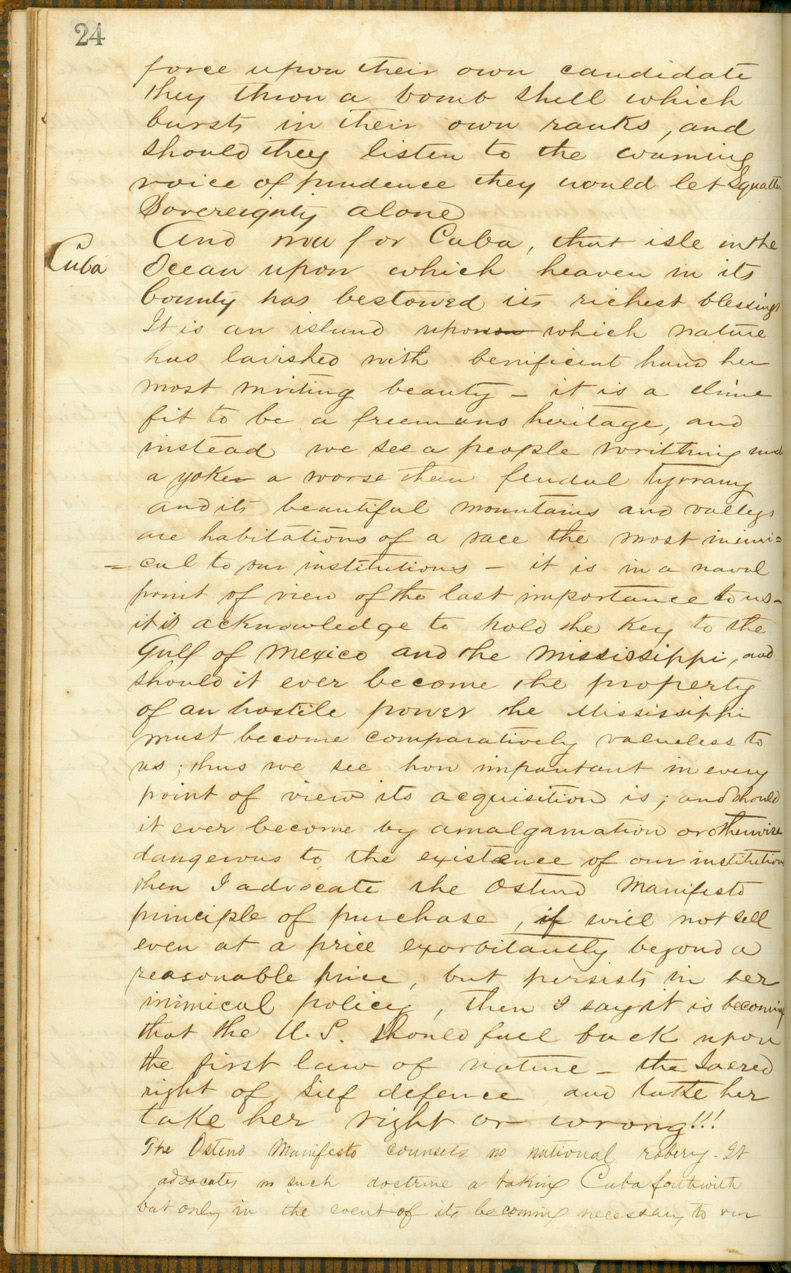 24
force upon their own candidate
they thron a bomb shell which
bursts in their own ranks, and
should they listen to the warning
voice of prudence they would let Squatter
Sovereignty alone
Cuba
And now for Cuba, that isle in the
Ocean upon which heaven in its
bounty has bestowed its richest blessings
It is an island upon which nature
has lavished with benificent hand her
most inviting beauty - it is a clime
fit to be a freemans heritage, and
instead we see a people writhing und
a yoke a worse than feudal tyrrany
and its beautiful mountains and valleys
are habitations of a race the most inimi=
=cal to our institutions - it is in a naval
point of view of the last importance to us -
it is acknowledge to hold the key to the
Gulf of Mexico and the Mississippi, and
should it ever become the property
of an hostile power the Mississippi
must become comparatively valueless to
us; thus we see how important in every
point of view its acquisition is; and should
it ever become by amalgamation or otherwise
dangerous to the existence of our institution
then I advocate the Ostend Manifesto
principle of purchase, if will not sell
even at a price exorbitantly beyond a
reasonable price, but persists in her
inimical policy, then I say it is becoming
that the U.S. should fall back upon
the first law of nature - the Sacred
right of self defence and take her
take her right or wrong!!!
The Ostend Manifesto counsels no national robery. It
advocates no such doctrine a taking Cuba forthwith
but only in the event of its becoming necessary to our